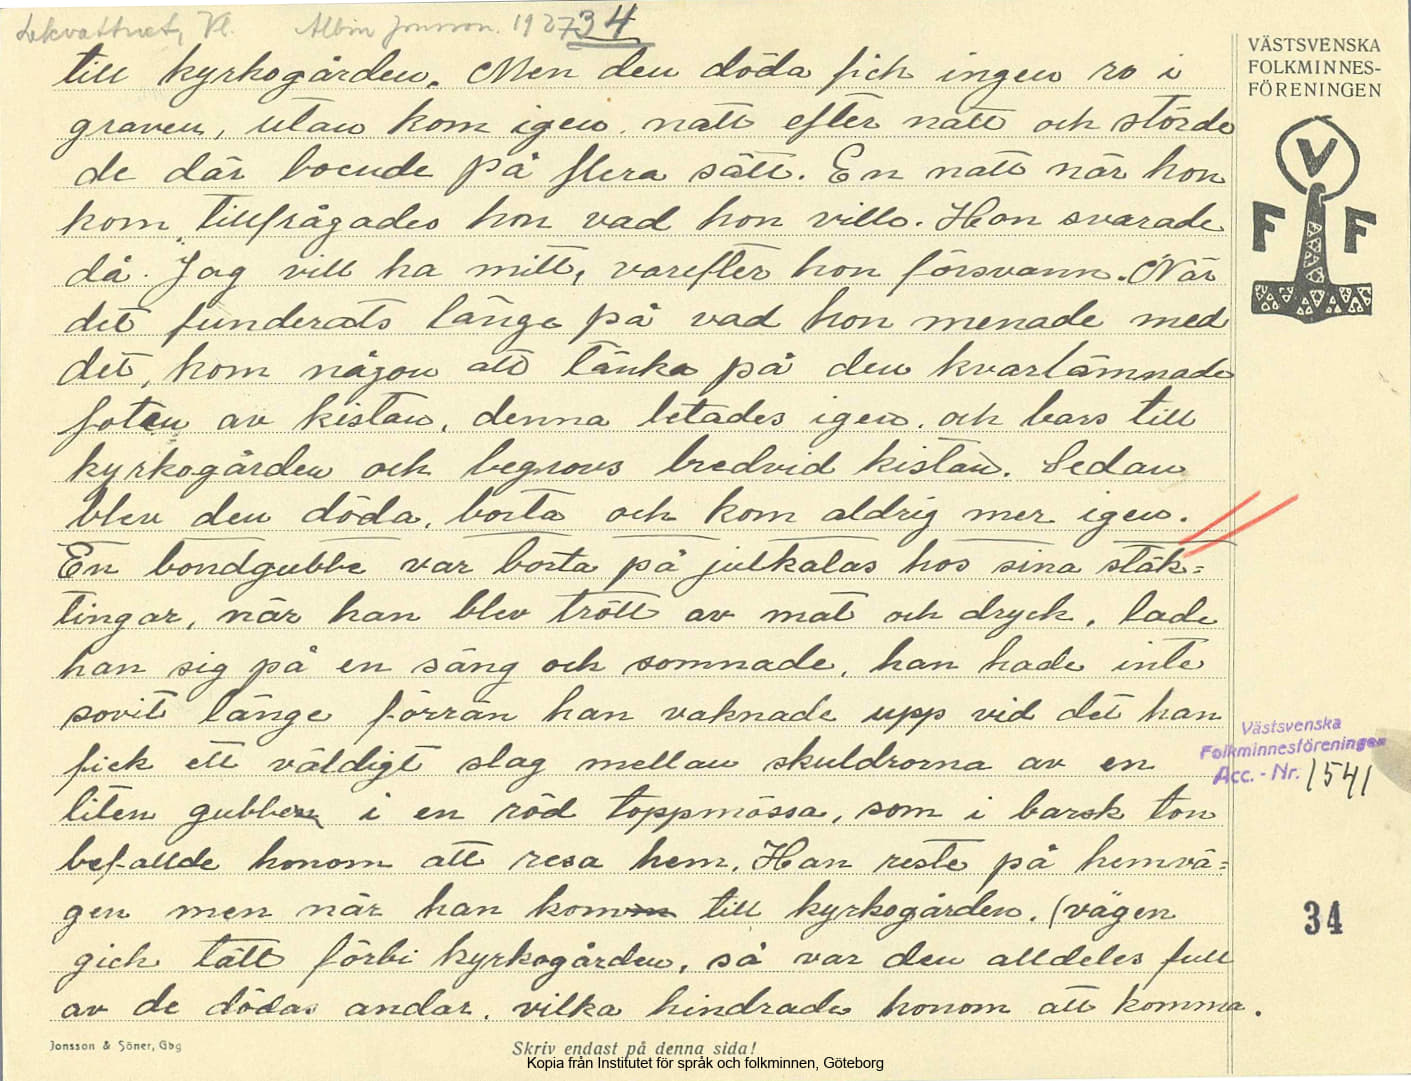 Lekvattnet, Vl. Albin Jonsson. 1927 34
till kyrkogården. Men den döda fick ingen ro i
graven, utan kom igen natt efter natt och störde
de där boende på flera sätt. En natt när hon
kom, tillfrågades hon vad hon ville. Hon svarade
då. Jag vill ha mitt, varefter hon försvann. När
det funderats länge på vad hon menade med
det, kom någon att tänka på den kvarlämnade
foten av kistan, denna letades igen och bars till
kyrkogården och begrovs bredvid kistan. Sedan
blev den döda, borta och kom aldrig mer igen.
En bondgubbe var borta på julkalas hos sina släk=
tingar, när han blev trött av mat och dryck, lade
han sig på en säng och somnade, han hade inte
sovit länge förrän han vaknade upp vid det han
fick ett väldigt slag mellan skuldrorna av en
liten gubben i en röd toppmössa, som i barsk ton
befallde honom att resa hem. Han reste på hemvä=
gen men när han kom till kyrkogården, (vägen
gick tätt förbi kyrkogården, så var den alldeles full
av de dödas andar, vilka hindrade honom att komma.
VÄSTSVENSKA
FOLKMINNES-
FÖRENINGEN
V
F F
Västsvenska
Folkminnesföreningen
Acc. - Nr. 1541
34
Jonsson & Söner, Gbg
Skriv endast på denna sida!
Kopia från Institutet för språk och folkminnen, Göteborg